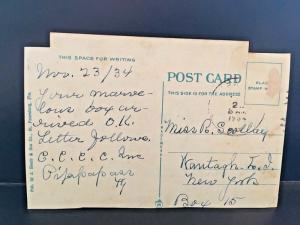 THIS SPACE FOR WRITING
Nov. 23/34
Your marve-
lous box ar-
rived O.K.
Letter follows.
C.C.C.C. Inc
Pippapass
Ky
POST CARD
THIS SIDE IS FOR THE ADDRESS
Miss R.
Wantagh L.I.
New York
Box 15